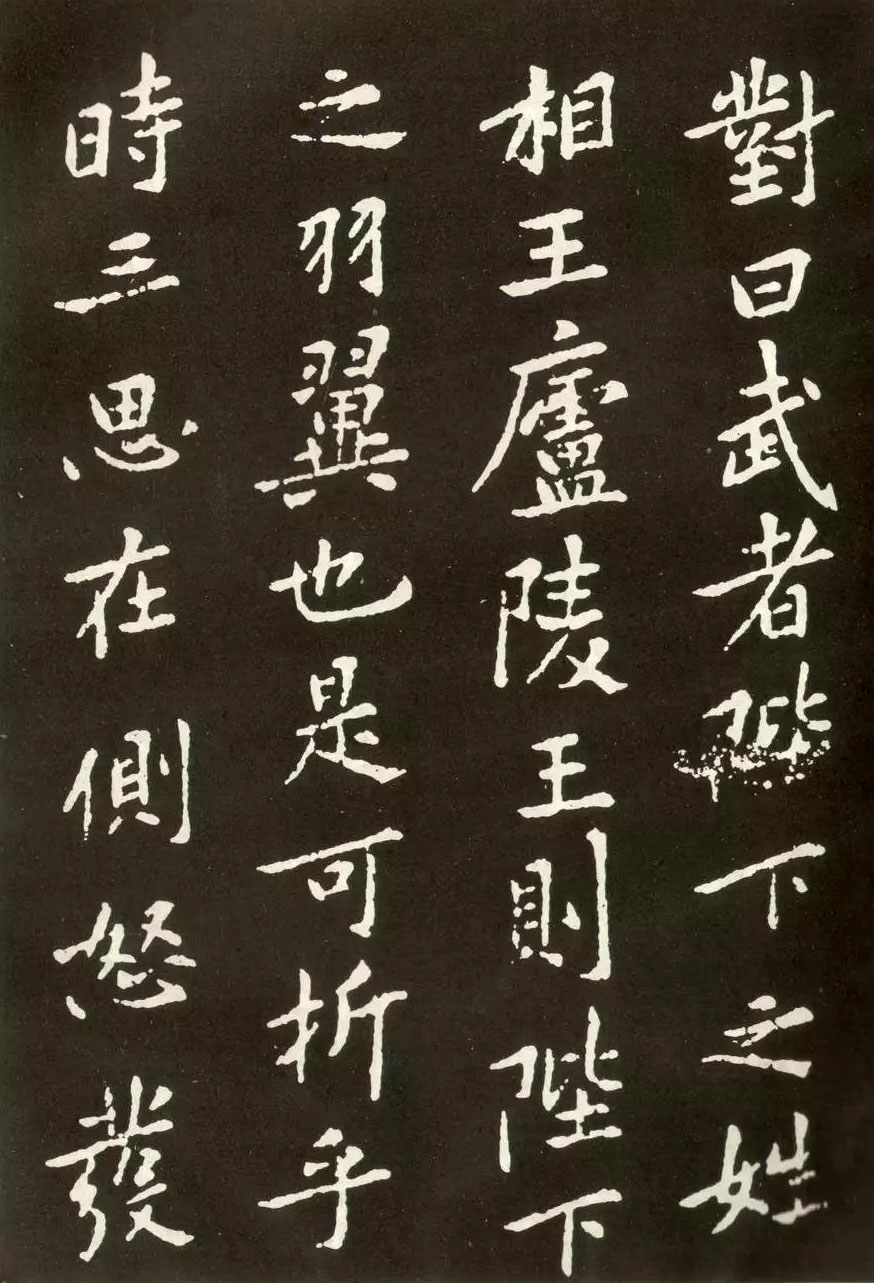 對曰武者陛下之姓
相王廬陵王則陛下
之羽翼也是可折乎
時三思在側怒發